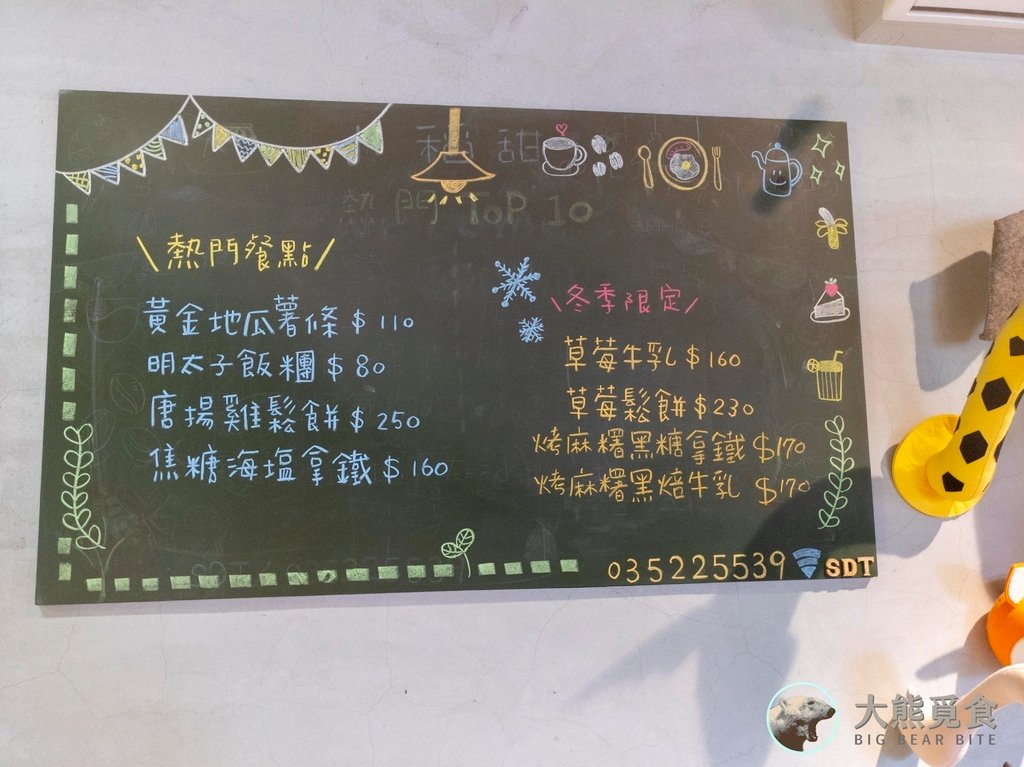 稻甜
熱門 TOP 10
\熱門餐點/
黃金地瓜薯條 $110
明太子飯糰 $80
唐揚雞鬆餅 $250
焦糖海塩拿鐵 $160
\冬季限定/
草莓牛乳 $160
草莓鬆餅 $230
烤麻糬黑糖拿鐵 $170
烤麻糬黑焙牛乳 $170
035225539 SDT
大熊覓食
BIG BEAR BITE